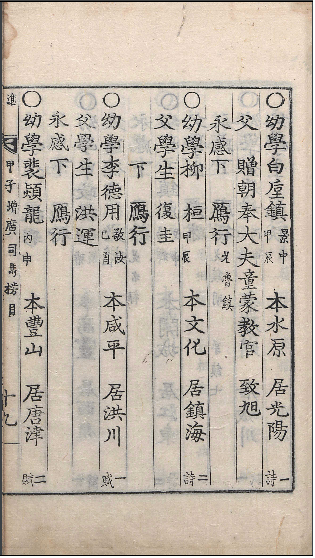 ○幼學白虛鎭 景中 甲辰 本水原 居光陽 詩一
父 贈朝奉大夫童蒙教官 致旭
永感下 鴈行 魯鎭
○幼學柳 桓 甲辰 本文化 居鎭海 詩二
父學生 復圭
下 鴈行
○幼學李德用 敬汝 己酉 本咸平 居洪川 賦一
父學生 洪運
永感下 鴈行
○幼學裴熲龍 丙申 本豊山 居唐津 賦二
進 甲子增廣司馬榜目 十九